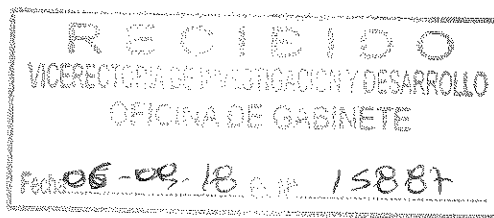 RECIBIDO
VICERECTORIA DE INVESTIGACION Y DESARROLLO
OFICINA DE GABINETE
Fecha 06-09-18 C. Nº 15887